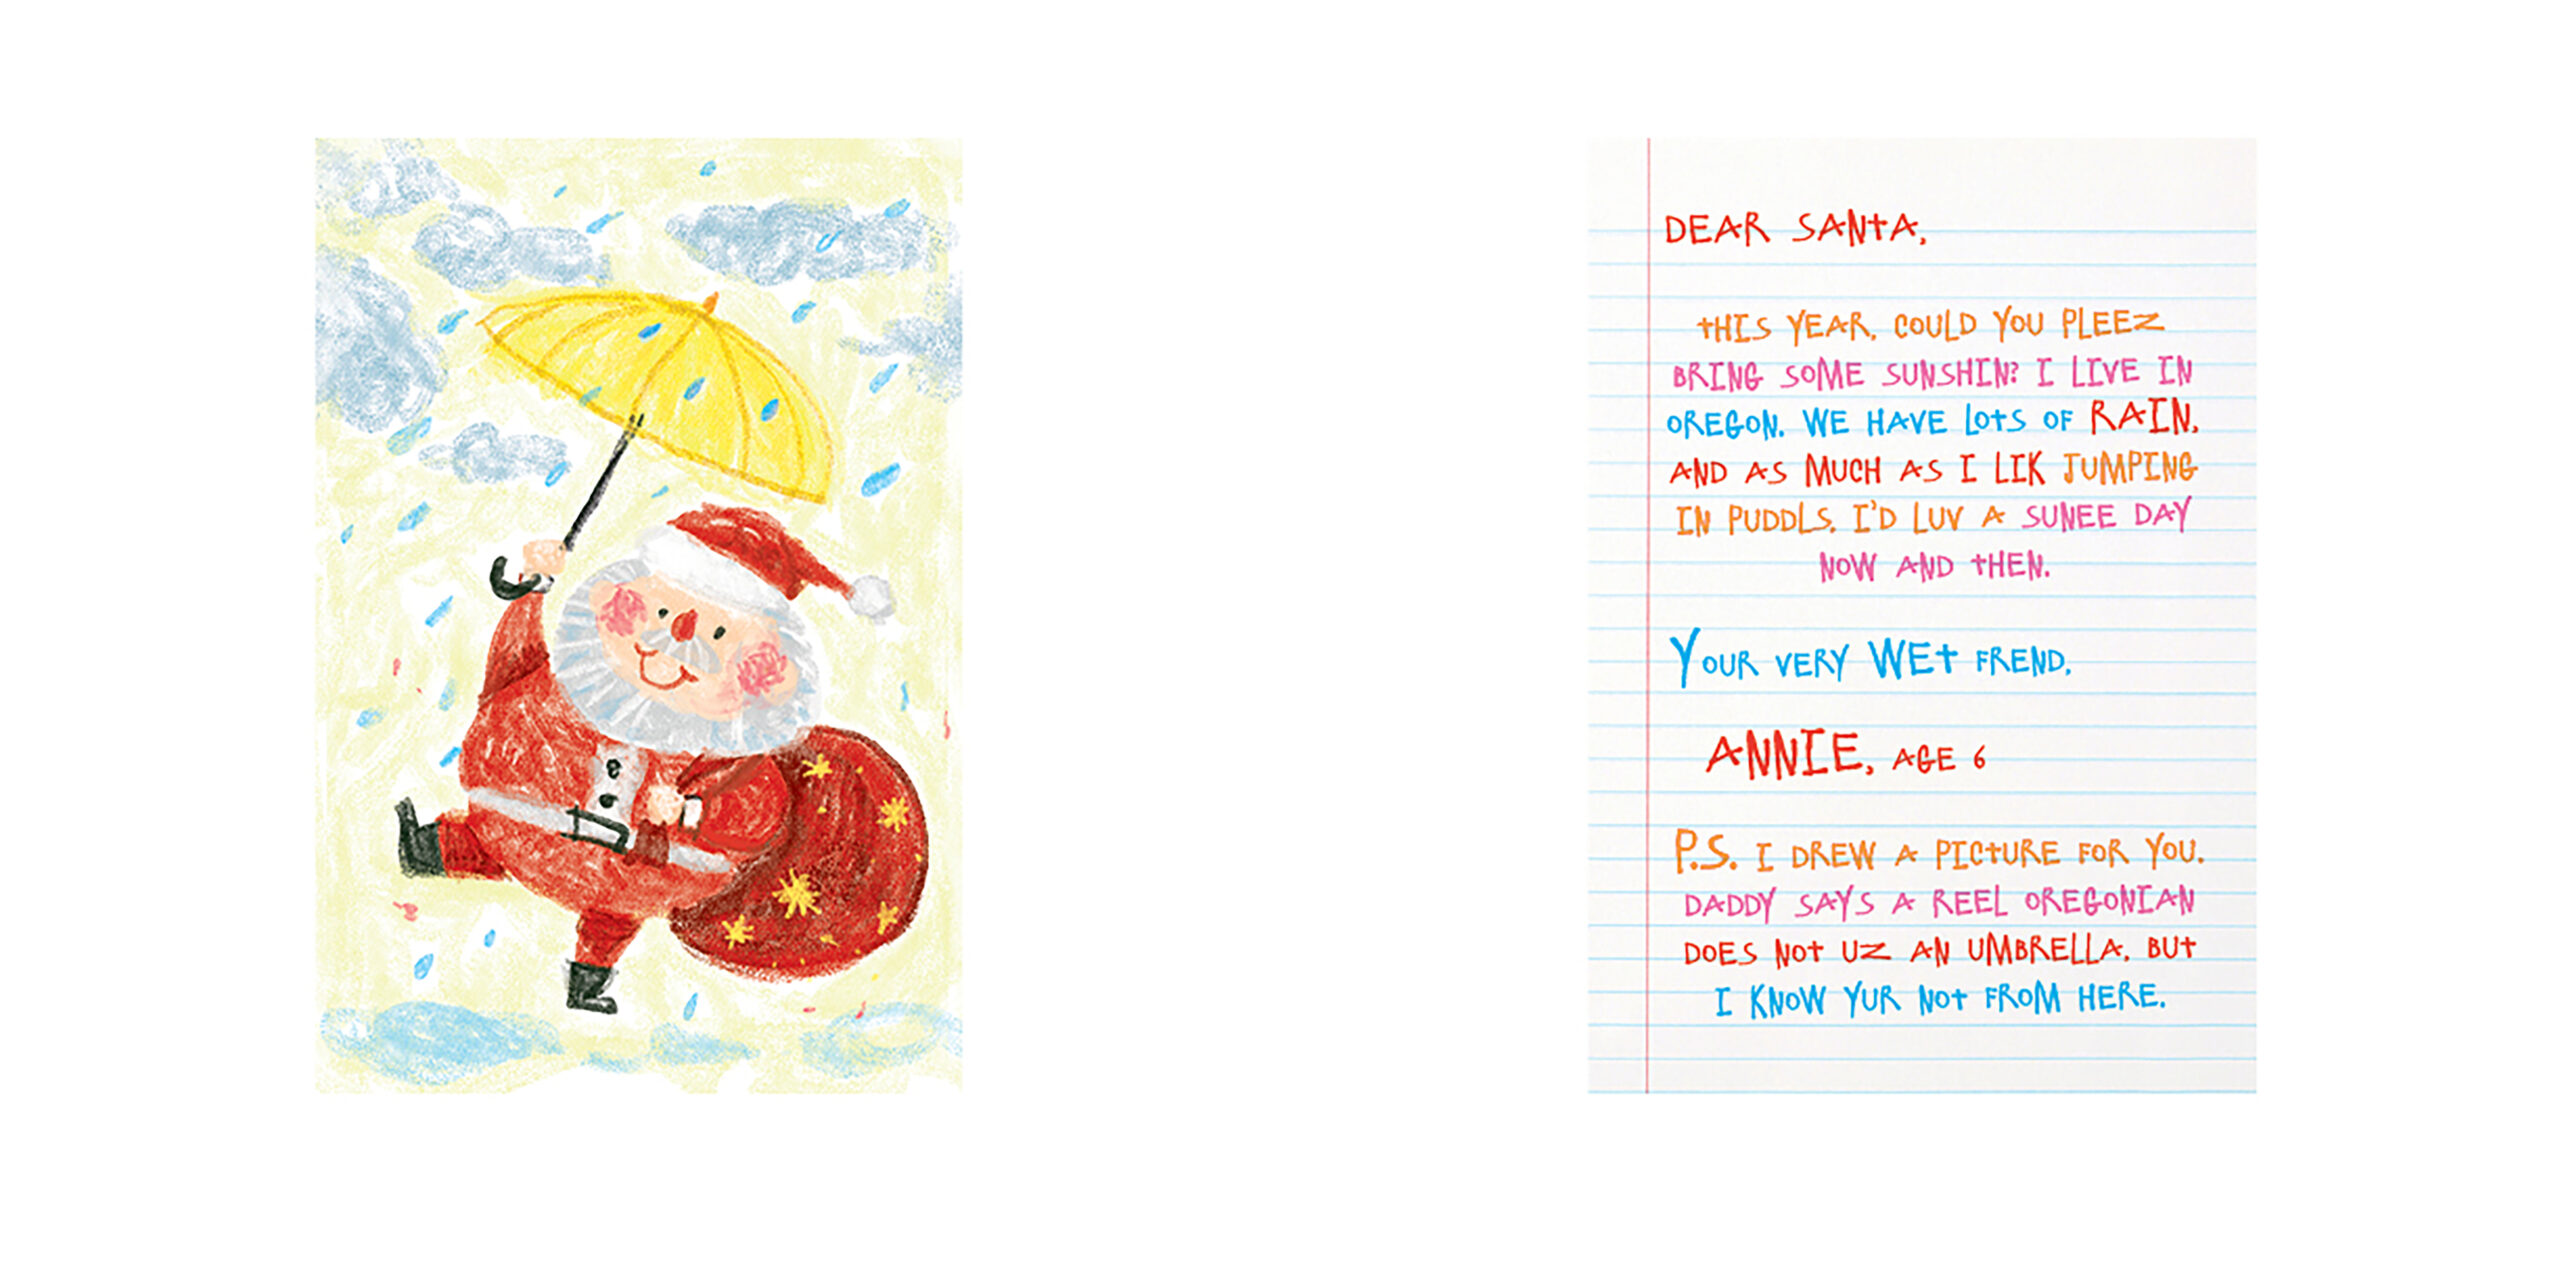 DEAR SANTA,
THIS YEAR, COULD YOU PLEEZ
BRING SOME SUNSHIN? I LIVE IN
OREGON. WE HAVE LOTS OF RAIN,
AND AS MUCH AS I LIK JUMPING
IN PUDDLS, I'D LUV A SUNEE DAY
NOW AND THEN.
YOUR VERY WET FREND,
ANNIE, AGE 6
P.S. I DREW A PICTURE FOR YOU.
DADDY SAYS A REEL OREGONIAN
DOES NOT UZ AN UMBRELLA, BUT
I KNOW YUR NOT FROM HERE.